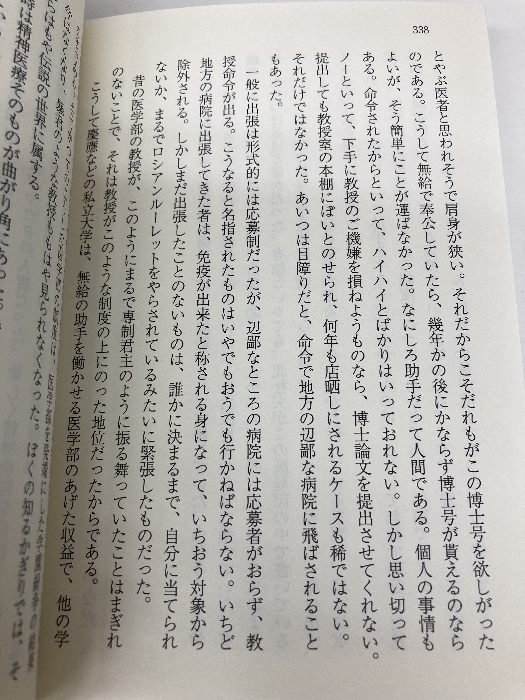 338
とやぶ医者と思われそうで肩身が狭い。それだからこそだれもがこの博士号を欲しがった
のである。こうして無給で奉公していたら、幾年かの後にかならず博士号が貰えるのなら
よいが、そう簡単にことが運ばなかった。なにしろ助手だって人間である。個人の事情も
ある。命令されたからといって、ハイハイとばかりはいっておれない。しかし思い切って
ノーといって、下手に教授のご機嫌を損ねようものなら、博士論文を提出させてくれない。
提出しても教授室の本棚にぽいとのせられ、何年も店晒しにされるケースも稀ではない。
それだけではなかった。あいつは目障りだと、命令で地方の辺鄙な病院に飛ばされること
もあった。
一般に出張は形式的には応募制だったが、辺鄙なところの病院には応募者がおらず、教
授命令が出る。こうなると名指されたものはいやでもおうでも行かねばならない。いちど
地方の病院に出張してきた者は、免疫が出来たと称される身になって、いちおう対象から
除外される。しかしまだ出張したことのないものは、誰かに決まるまで、自分に当てられ
ないか、まるでロシアン・ルーレットをやらされているみたいに緊張したものだった。
昔の医学部の教授が、このようにまるで専制君主のように振る舞っていたことはまぎれ
のないことで、それは教授がこのような制度の上にのった地位だったからである。
こうして慶應などの私立大学は、無給の助手を働かせる医学部のあげた収益で、他の学
医学部を発端にした学園紛争の結果
教授ももはや見られなくなった。ぼくの知るかぎりでは、そ
らはもや伝説の世界に属する。
時は精神医療そのものが曲がり角にあった